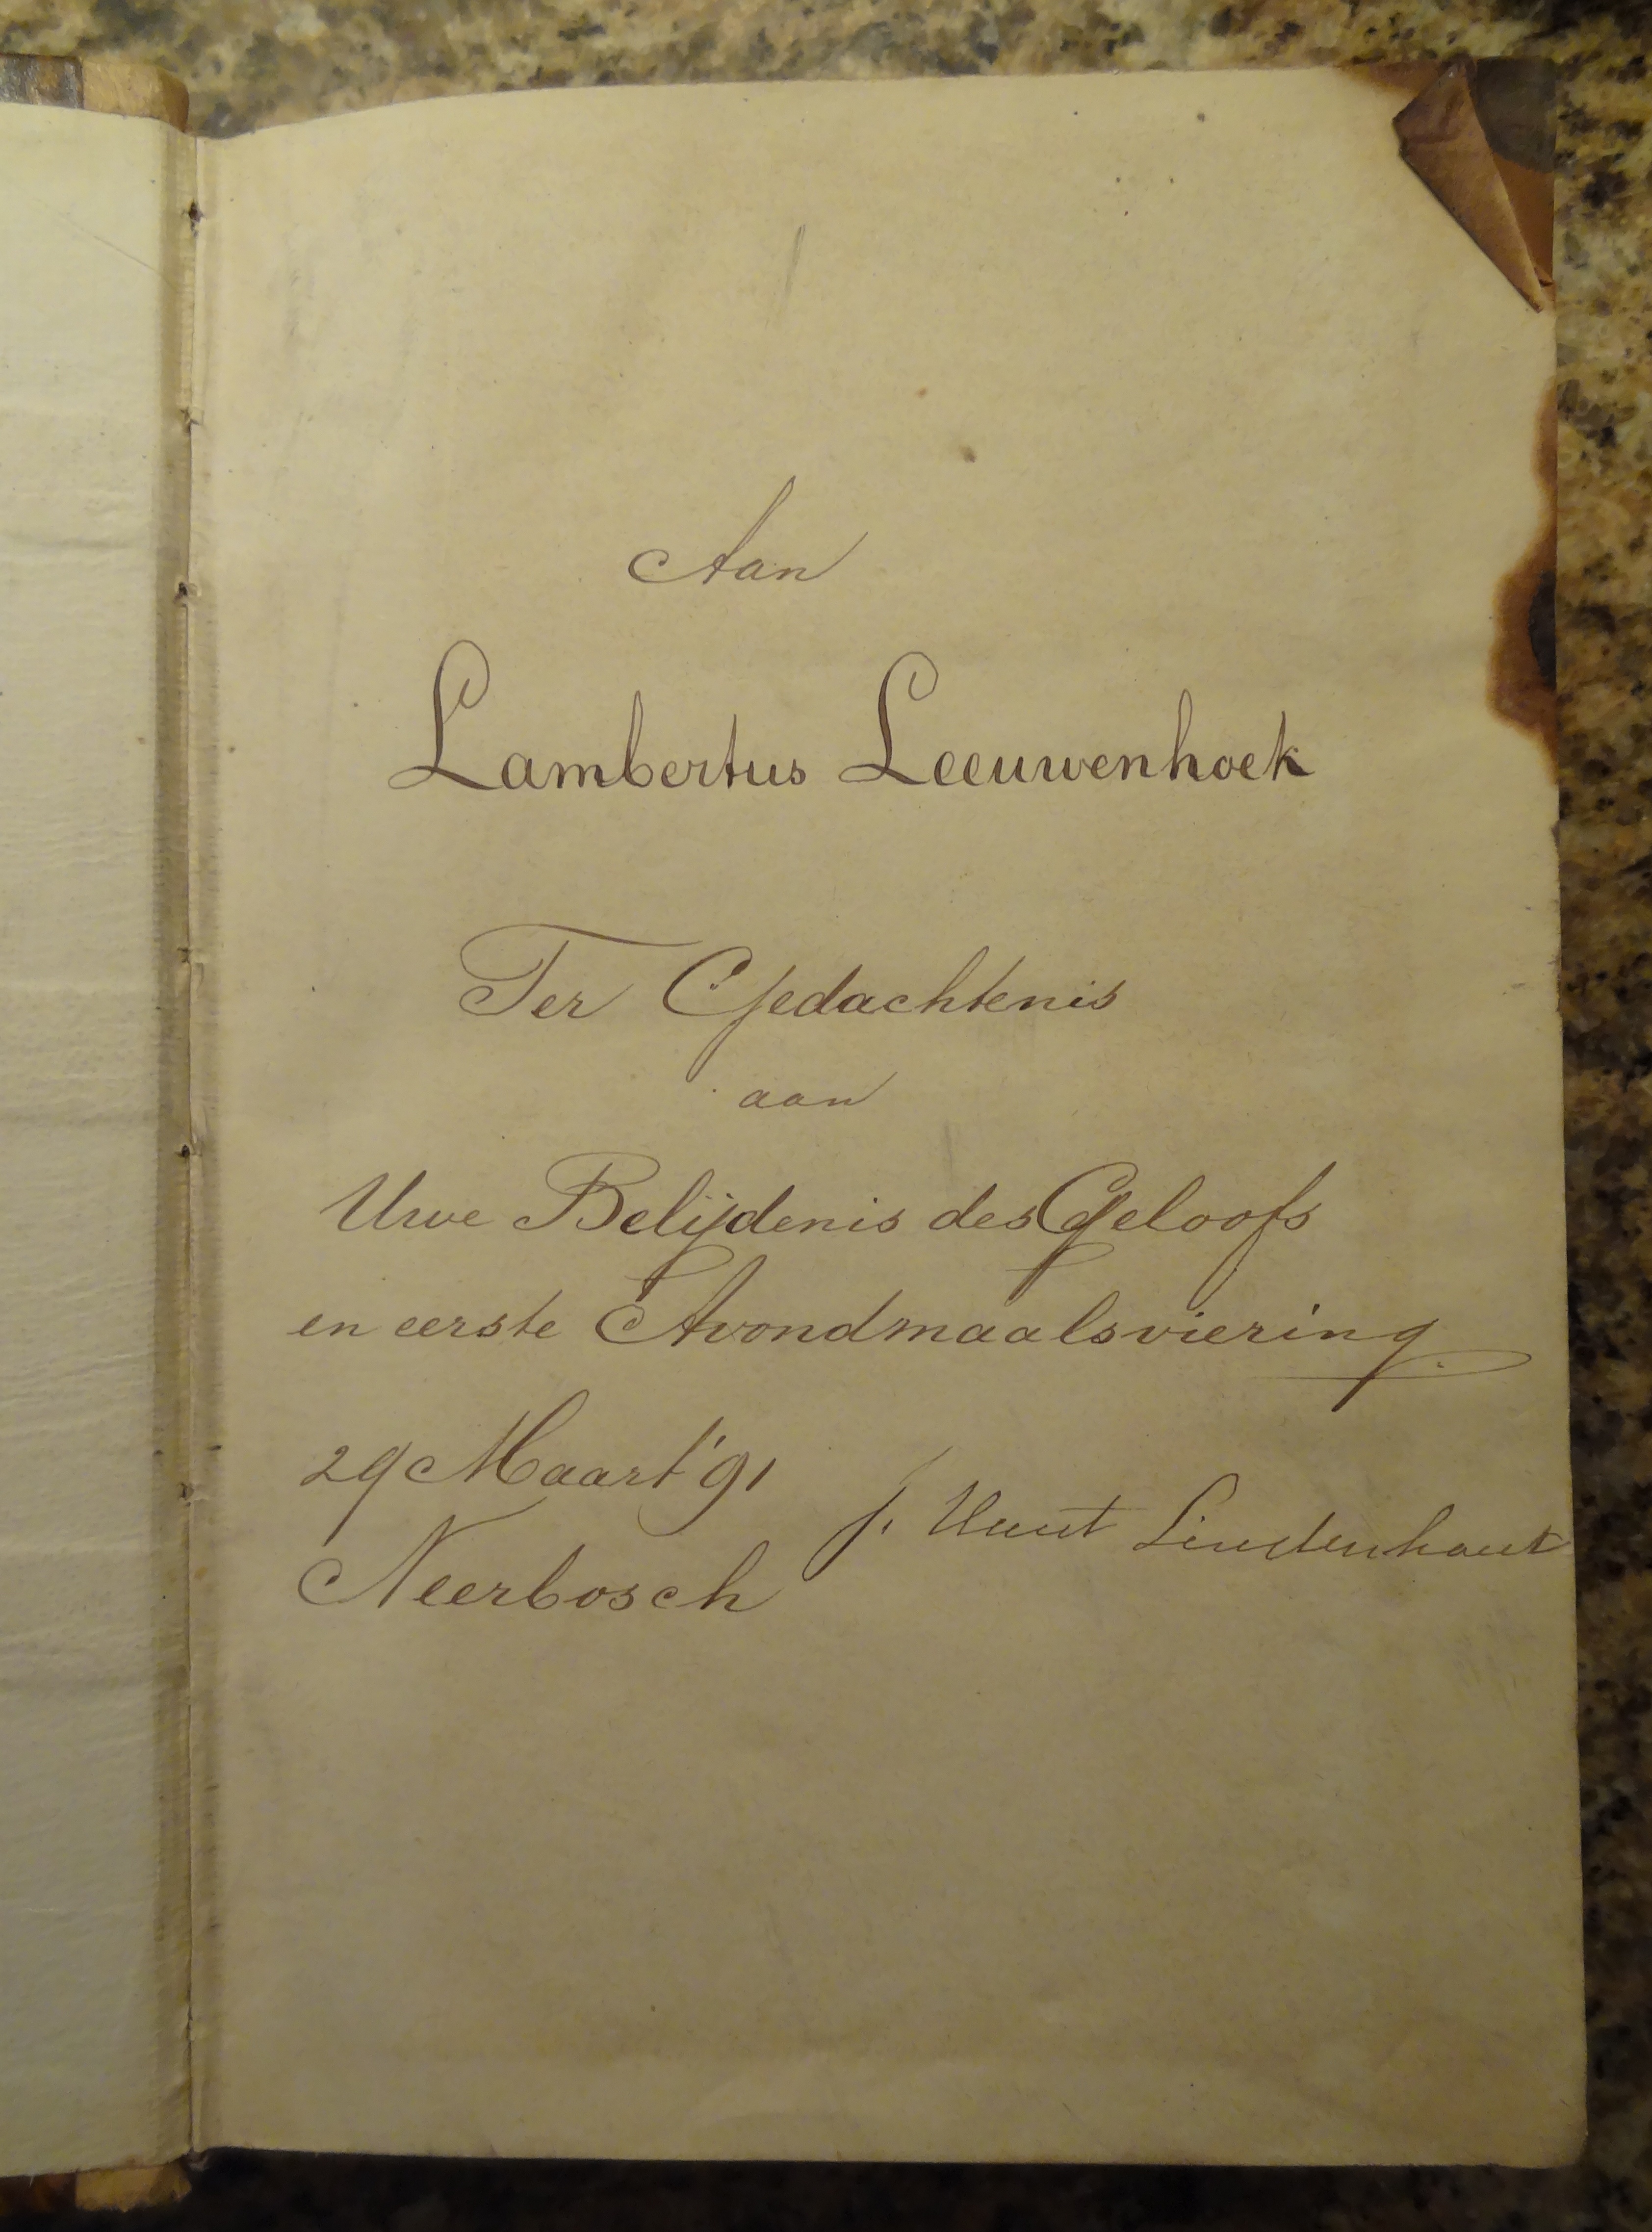 Aan
Lambertus Leeuwenhoek
Ter Gedachtenis
aan
Uwe Belijdenis des Geloofs
en eerste Avondmaalsviering
29 Maart '91
J. Van't Lindenhout
Neerbosch